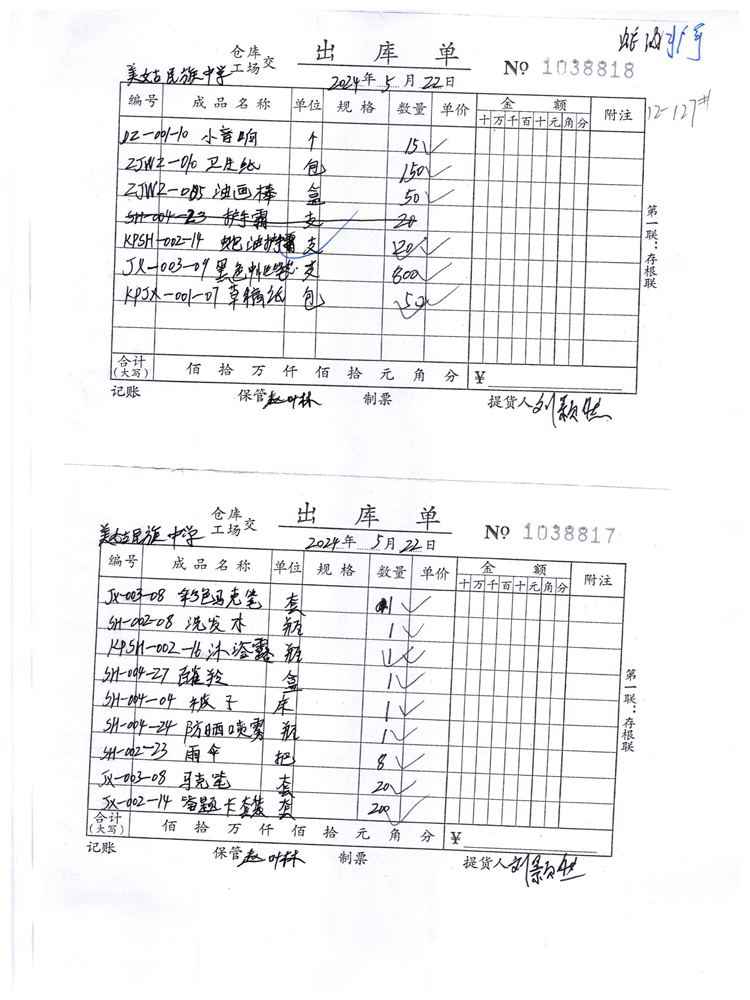 仓库
工场交
出库单
No 1038818
美姑民族中学
2024年5月22日
12-127#
编号 成品名称 单位 规格 数量 单价 金额 附注
十万千百十元角分
DZ-001-10 小音响 个 15
ZJWZ-010 卫生纸 包 150
ZJWZ-085 油画棒 盒 50
SH-004-23 护手霜 支 20
KPSH-002-14 蛇油护手霜 支 120
JX-003-09 黑色中性笔 支 800
KPJX-001-07 草稿纸 包 50
合计
(大写) 佰拾万仟佰拾元角分 ¥
第一联：存根联
记账 保管 赵叶林 制票 提货人 刘颖
仓库
工场交
出库单
No 1038817
美姑民族中学
2024年5月22日
编号 成品名称 单位 规格 数量 单价 金额 附注
十万千百十元角分
JX-003-08 彩色马克笔 套 1
SH-002-08 洗发水 瓶 1
KPSH-002-16 沐浴露 瓶 1
SH-004-27 百雀羚 盒 1
SH-004-04 被子 床 1
SH-004-24 防晒喷雾 瓶 1
SH-002-23 雨伞 把 8
JX-003-08 马克笔 套 20
JX-002-14 答题卡套装 套 200
合计
(大写) 佰拾万仟佰拾元角分 ¥
第一联：存根联
记账 保管 赵叶林 制票 提货人 刘颖